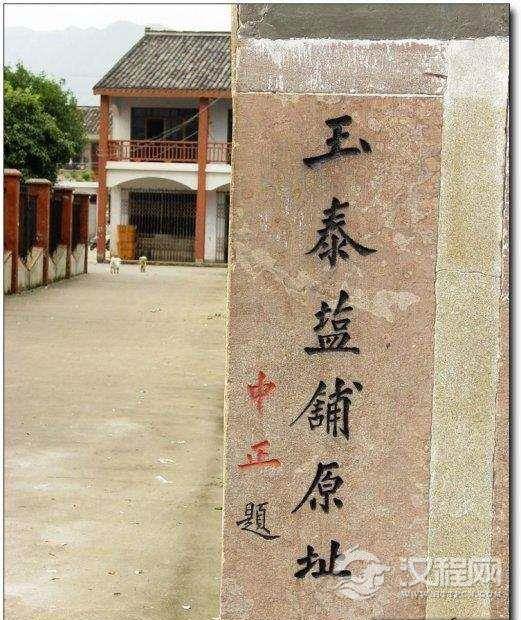 玉泰盐舖原址
中正題
汉程网
HTTPCN.COM